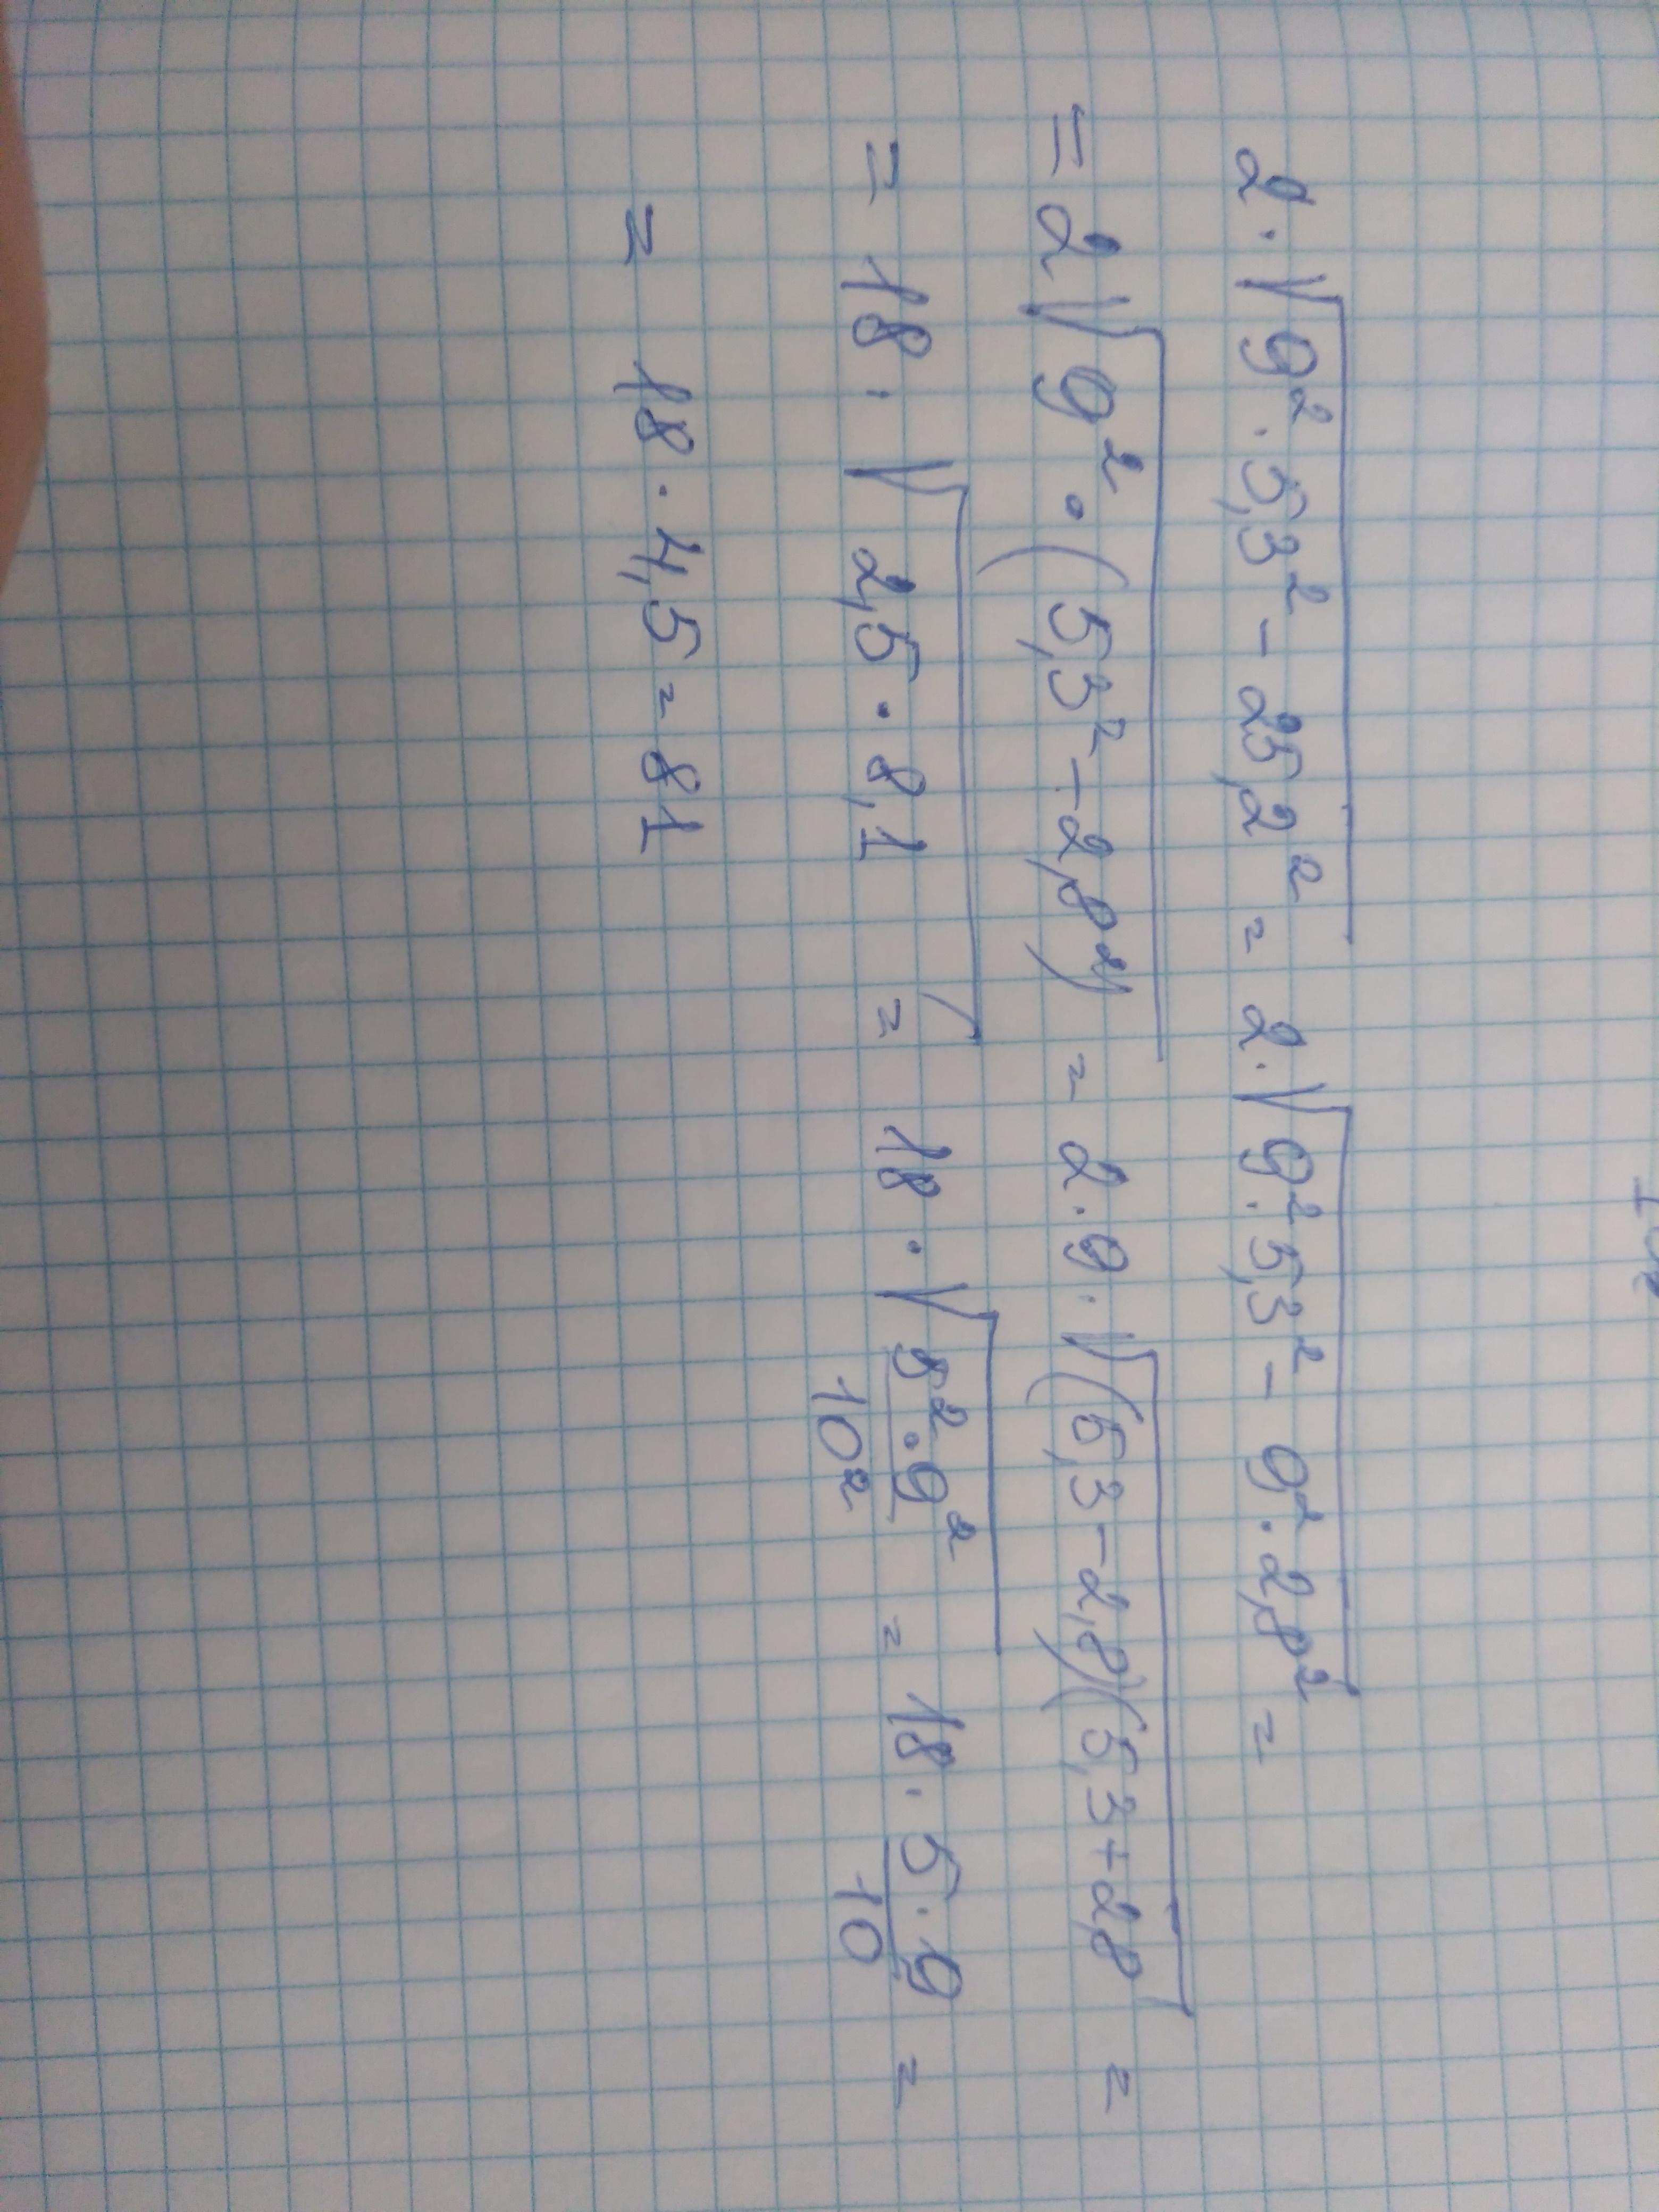 2·√(9²·5,3² − 25,2²) = 2·√(9²·5,3² − 9²·2,8²) =
= 2√(9²·(5,3² − 2,8²)) = 2·9·√((5,3 − 2,8)(5,3 + 2,8) =
= 18·√(2,5·8,1) = 18·√(5²·9²/10²) = 18·5·9/10 =
= 18·4,5 = 81